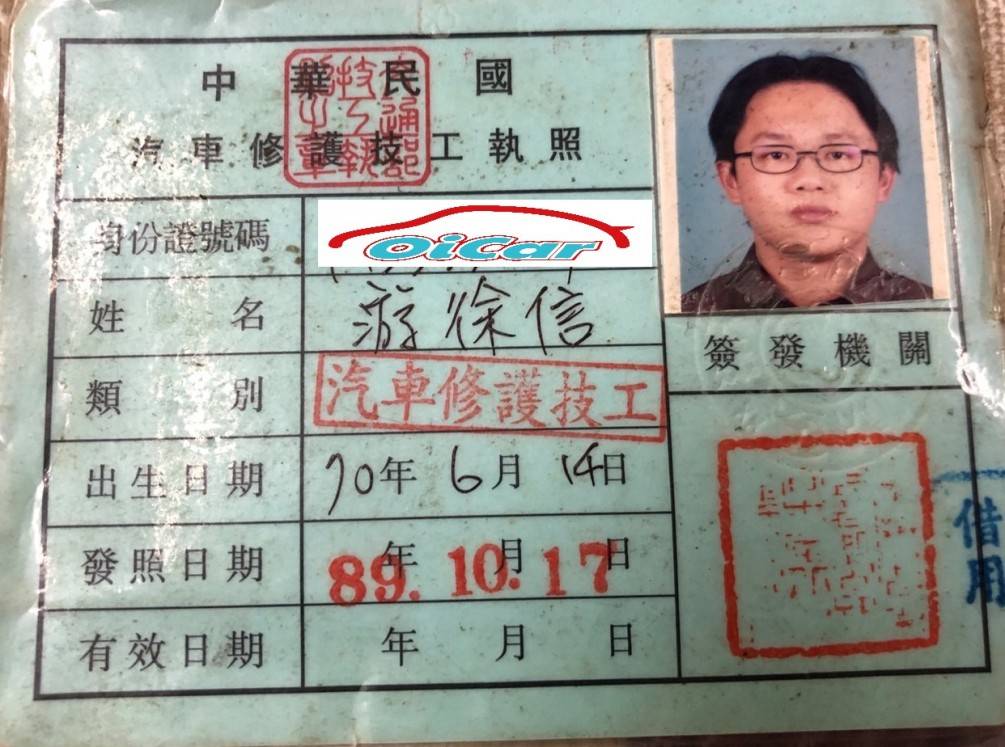 中華民國
汽車修護技工執照
身份證號碼 OiCar
姓名 游徐信
類別 汽車修護技工
出生日期 70年6月14日
發照日期 89年10月17日
有效日期 年 月 日
簽發機關
借用